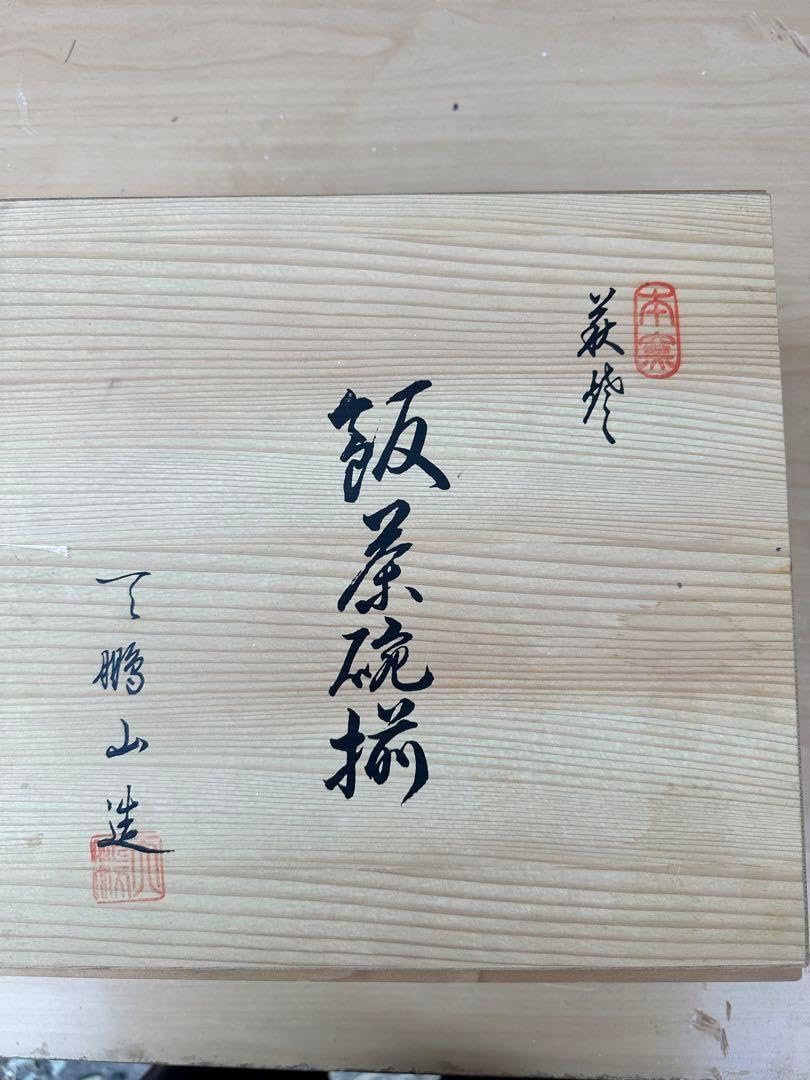 本窯
萩焼
飯茶碗揃
天鵬山造